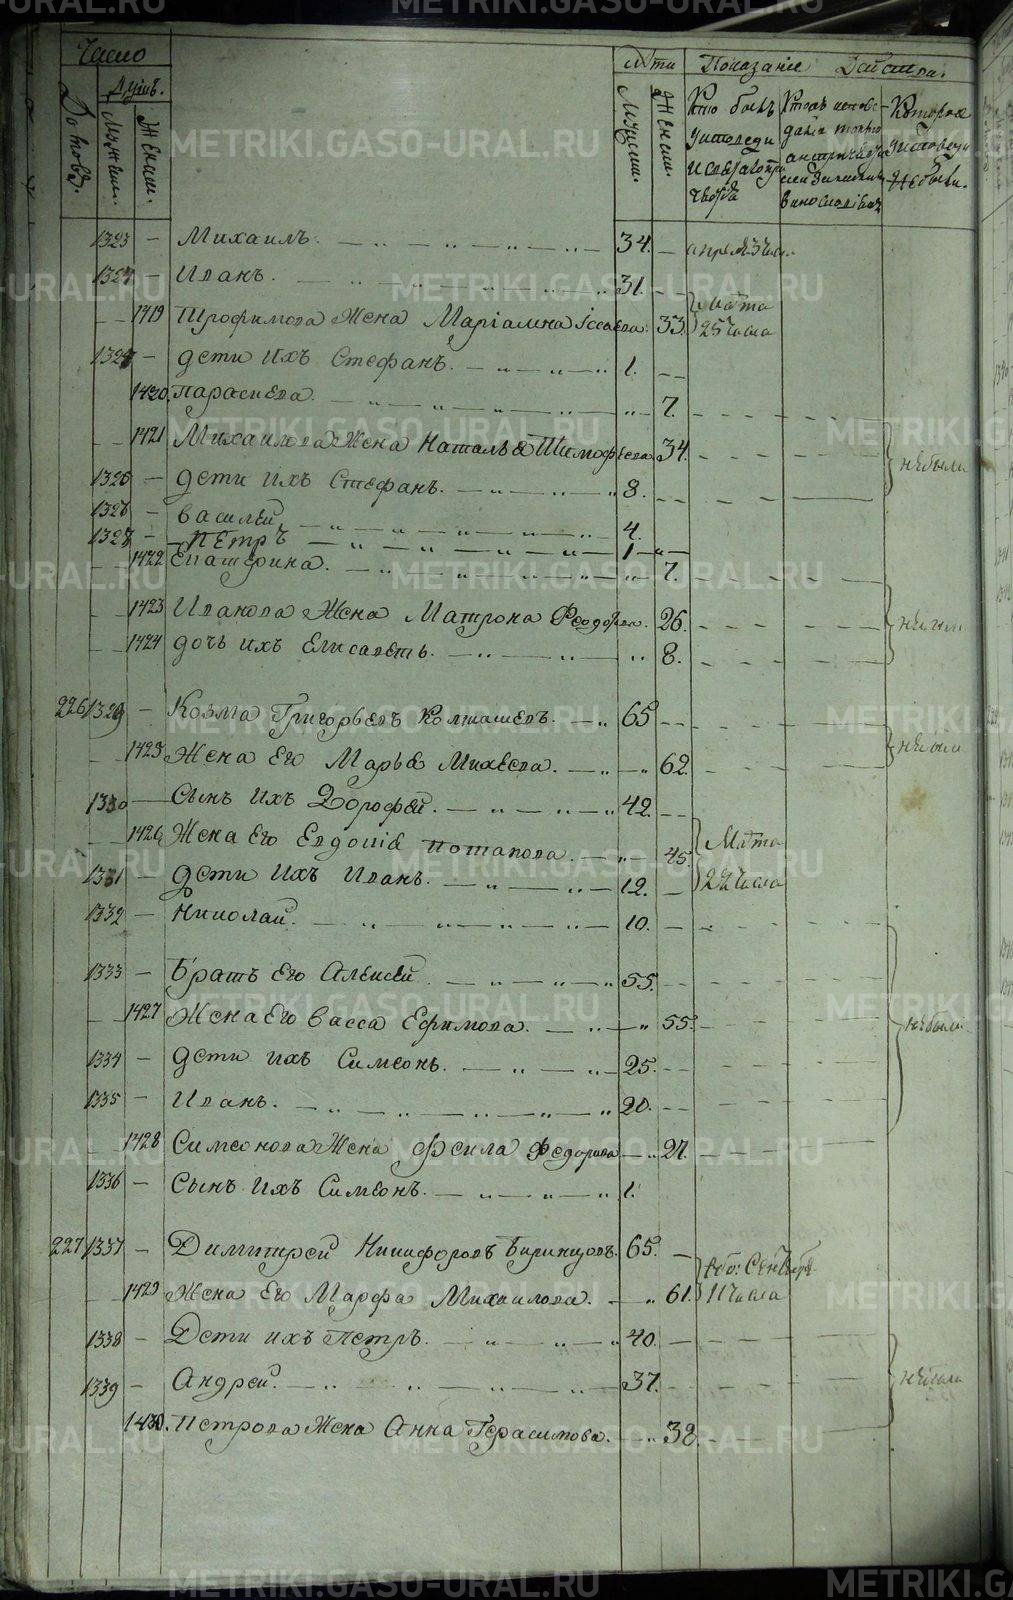 Число
Душъ.
Дворовъ.
Мужеск.
Женск.
Лѣта
Мужеск.
Женск.
Показаніе Дѣйства.
Кто былъ
у исповѣди
и св. причастія
Которые
у исповѣди
не были.
1323 — Михаилъ. 34. — апреля 3 числа.
1324 — Иванъ. 31.
1419 Трофимова Жена Маріамна Ісаева. 33. Марта 25 числа
дѣти ихъ Стефанъ. 1.
1420. Параскева. 7.
1421 Михаилова Жена Наталья Тимофѣева 34. не были
1325 — дѣти ихъ Стефанъ. 8.
1326 — Василей, 4.
— Петръ 1
1422 Екатерина. 7.
1423 Иванова Жена Матрона Феодорова. 26. не были
1424 дочь ихъ Елисаветъ. 8.
226 1329 — Козма Григорьевъ Колташевъ. 65
Жена его Марья Михеева. 62. не были
1330 — Сынъ ихъ Дорофей. 42.
1426 Жена его Евдокія Потапова. 45. Марта
1331 — дѣти ихъ Иванъ. 12. 22 числа
1332 — Николай. 10.
1333 — Братъ его Алексей. 55.
1427 Жена его Васса Ефимова. 55. не были
1334 — дѣти ихъ Симеонъ. 25.
1335 — Иванъ. 20.
1428 Симеонова Жена Федорова 27.
1336 — Сынъ ихъ Симеонъ. 1.
227 1337 — Димитрей Никифоровъ Биринцовъ. 65.
1429 Жена его Марфа Михаилова. 61. 11 числа
1338 — Дѣти ихъ Петръ. 40.
1339 — Андрей. 37. не были
1430. Петрова Жена Анна Герасимова. 38.
METRIKI.GASO-URAL.RU